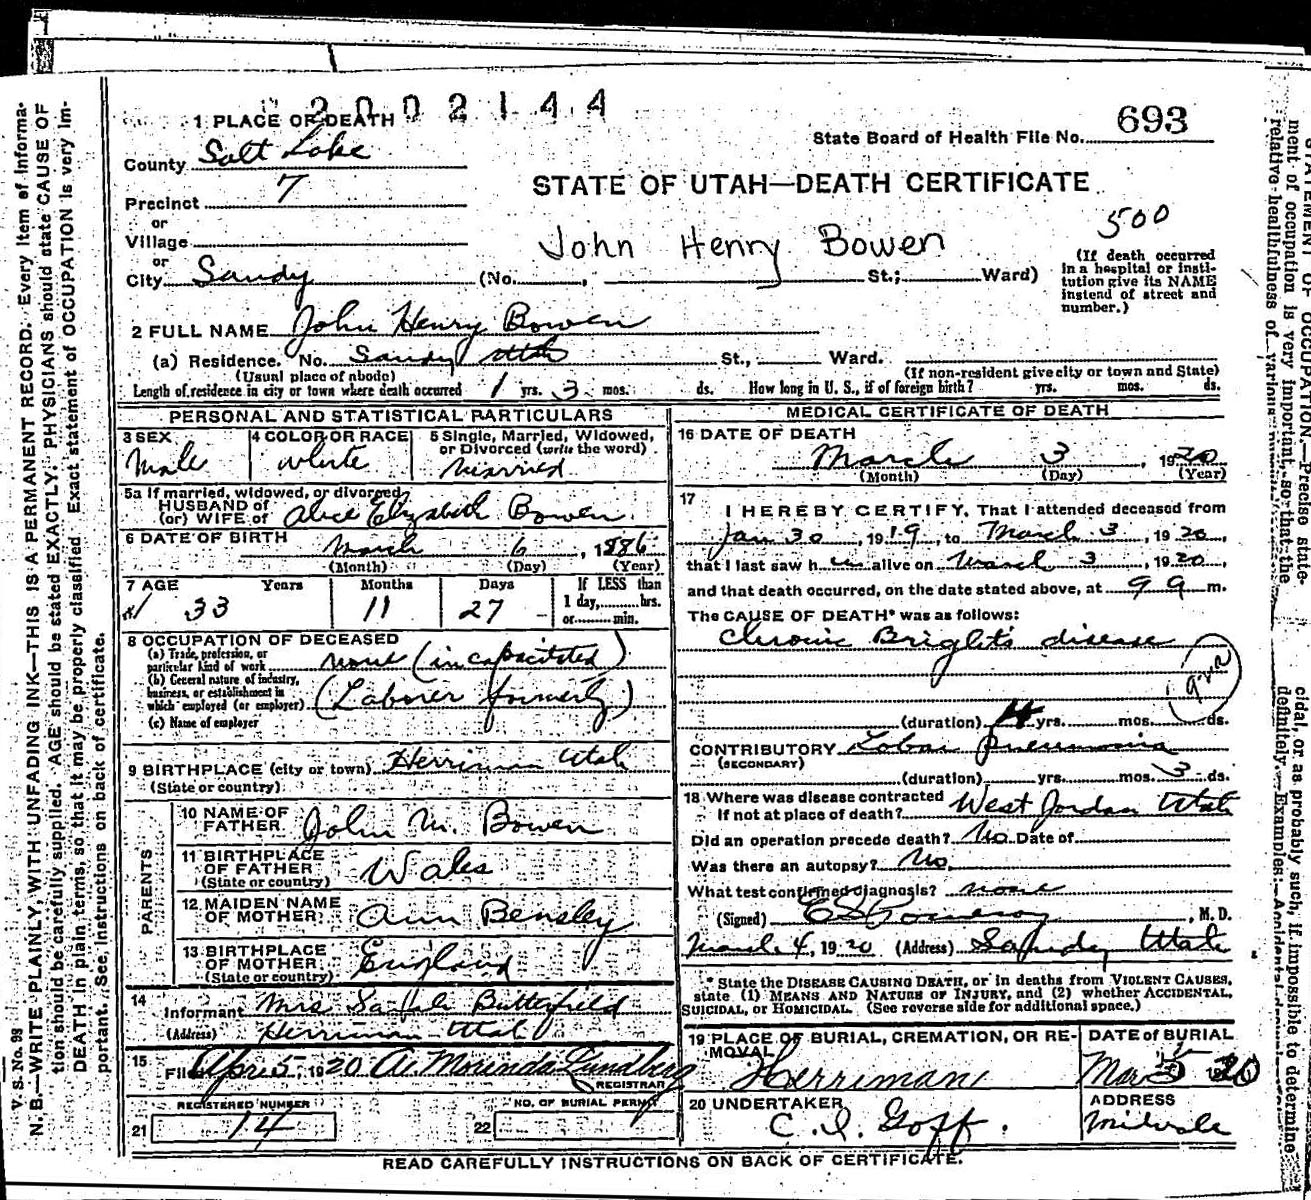 2002144
1 PLACE OF DEATH
County Salt Lake
State Board of Health File No. 693
Precinct 7
STATE OF UTAH—DEATH CERTIFICATE
or
Village
or
City Sandy (No. , St.; Ward)
John Henry Bowen
500
(If death occurred
in a hospital or insti-
tution give its NAME
instead of street and
number.)
2 FULL NAME John Henry Bowen
(a) Residence. No. Sandy Utah St., Ward.
(Usual place of abode) (If non-resident give city or town and State)
Length of residence in city or town where death occurred 1 yrs. 3 mos. ds. How long in U. S., if of foreign birth? yrs. mos. ds.
PERSONAL AND STATISTICAL PARTICULARS
3 SEX
Male
4 COLOR OR RACE
White
5 Single, Married, Widowed,
or Divorced (write the word)
Married
5a If married, widowed, or divorced
HUSBAND of
(or) WIFE of Alice Elizabeth Bowen
6 DATE OF BIRTH March 6, 1886
(Month) (Day) (Year)
7 AGE Years Months Days If LESS than
33 11 27 1 day, hrs.
or min.
8 OCCUPATION OF DECEASED
(a) Trade, profession, or
particular kind of work none (incapacitated)
(b) General nature of industry,
business, or establishment in
which employed (or employer) (Laborer formerly)
(c) Name of employer
9 BIRTHPLACE (city or town) Herriman Utah
(State or country)
PARENTS
10 NAME OF
FATHER John M. Bowen
11 BIRTHPLACE
OF FATHER Wales
(State or country)
12 MAIDEN NAME
OF MOTHER Ann Bensley
13 BIRTHPLACE
OF MOTHER England
(State or country)
14
Informant Mrs Butterfield
(Address) Herriman Utah
15
Filed Apr 5, 1920 A. Morinda Lundberg
REGISTRAR
REGISTERED NUMBER
21 14
NO. OF BURIAL PERMIT
22
MEDICAL CERTIFICATE OF DEATH
16 DATE OF DEATH
March 3, 1920
(Month) (Day) (Year)
17
I HEREBY CERTIFY, That I attended deceased from
Jan 30, 1919, to March 3, 1920,
that I last saw h im alive on March 3, 1920,
and that death occurred, on the date stated above, at 9 m.
The CAUSE OF DEATH* was as follows:
Chronic Brights disease
(duration) 4 yrs. mos. ds.
CONTRIBUTORY Lobar pneumonia
(SECONDARY)
(duration) yrs. mos. 3 ds.
18 Where was disease contracted
If not at place of death? West Jordan Utah
Did an operation precede death? No Date of
Was there an autopsy? No.
What test confirmed diagnosis? none
(Signed) E S Pomeroy, M. D.
March 4, 1920 (Address) Sandy Utah
* State the DISEASE CAUSING DEATH, or in deaths from VIOLENT CAUSES,
state (1) MEANS AND NATURE OF INJURY, and (2) whether ACCIDENTAL,
SUICIDAL, or HOMICIDAL. (See reverse side for additional space.)
19 PLACE OF BURIAL, CREMATION, OR RE-
MOVAL
Herriman
DATE of BURIAL
Mar 5 1920
20 UNDERTAKER
C. I. Goff.
ADDRESS
Midvale
READ CAREFULLY INSTRUCTIONS ON BACK OF CERTIFICATE.
V. S. No. 98
N. B.—WRITE PLAINLY, WITH UNFADING INK—THIS IS A PERMANENT RECORD. Every item of informa-
tion should be carefully supplied. AGE should be stated EXACTLY. PHYSICIANS should state CAUSE OF
DEATH in plain terms, so that it may be properly classified. Exact statement of OCCUPATION is very im-
portant. See instructions on back of certificate.
STATEMENT OF OCCUPATION.—Precise state-
ment of occupation is very important, so that the
relative healthfulness of various
cidal, or as probably such, if impossible to determine
definitely. Examples: